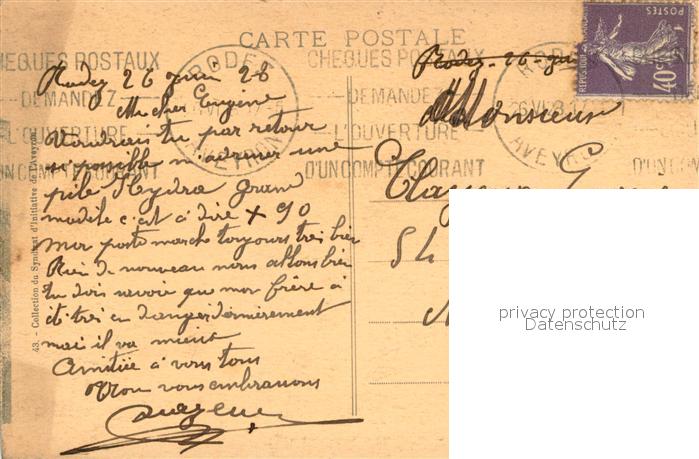 CARTE POSTALE
CHEQUES POSTAUX
DEMANDEZ
L'OUVERTURE
D'UN COMPTE COURANT
RODEZ
AVEYRON
CHEQUES POSTAUX
DEMANDEZ
L'OUVERTURE
D'UN COMPTE COURANT
AVEYRON
POSTES
40c
43. - Collection du Syndicat d'Initiative de l'Aveyron
Rodez 26 juin 28
Mon cher Eugène
Voudrais tu par retour
si possible m'adresser une
pile Hydra grand
modèle c'est à dire + 90
Mon poste marche toujours très bien
Rien de nouveau nous allons bien
tu dois savoir que mon frère à
été très en danger dernièrement
mai il va mieux
Amitiée à vous tous
vous embrassons
Rodez - 26 - jui
Monsieur
privacy protection
Datenschutz